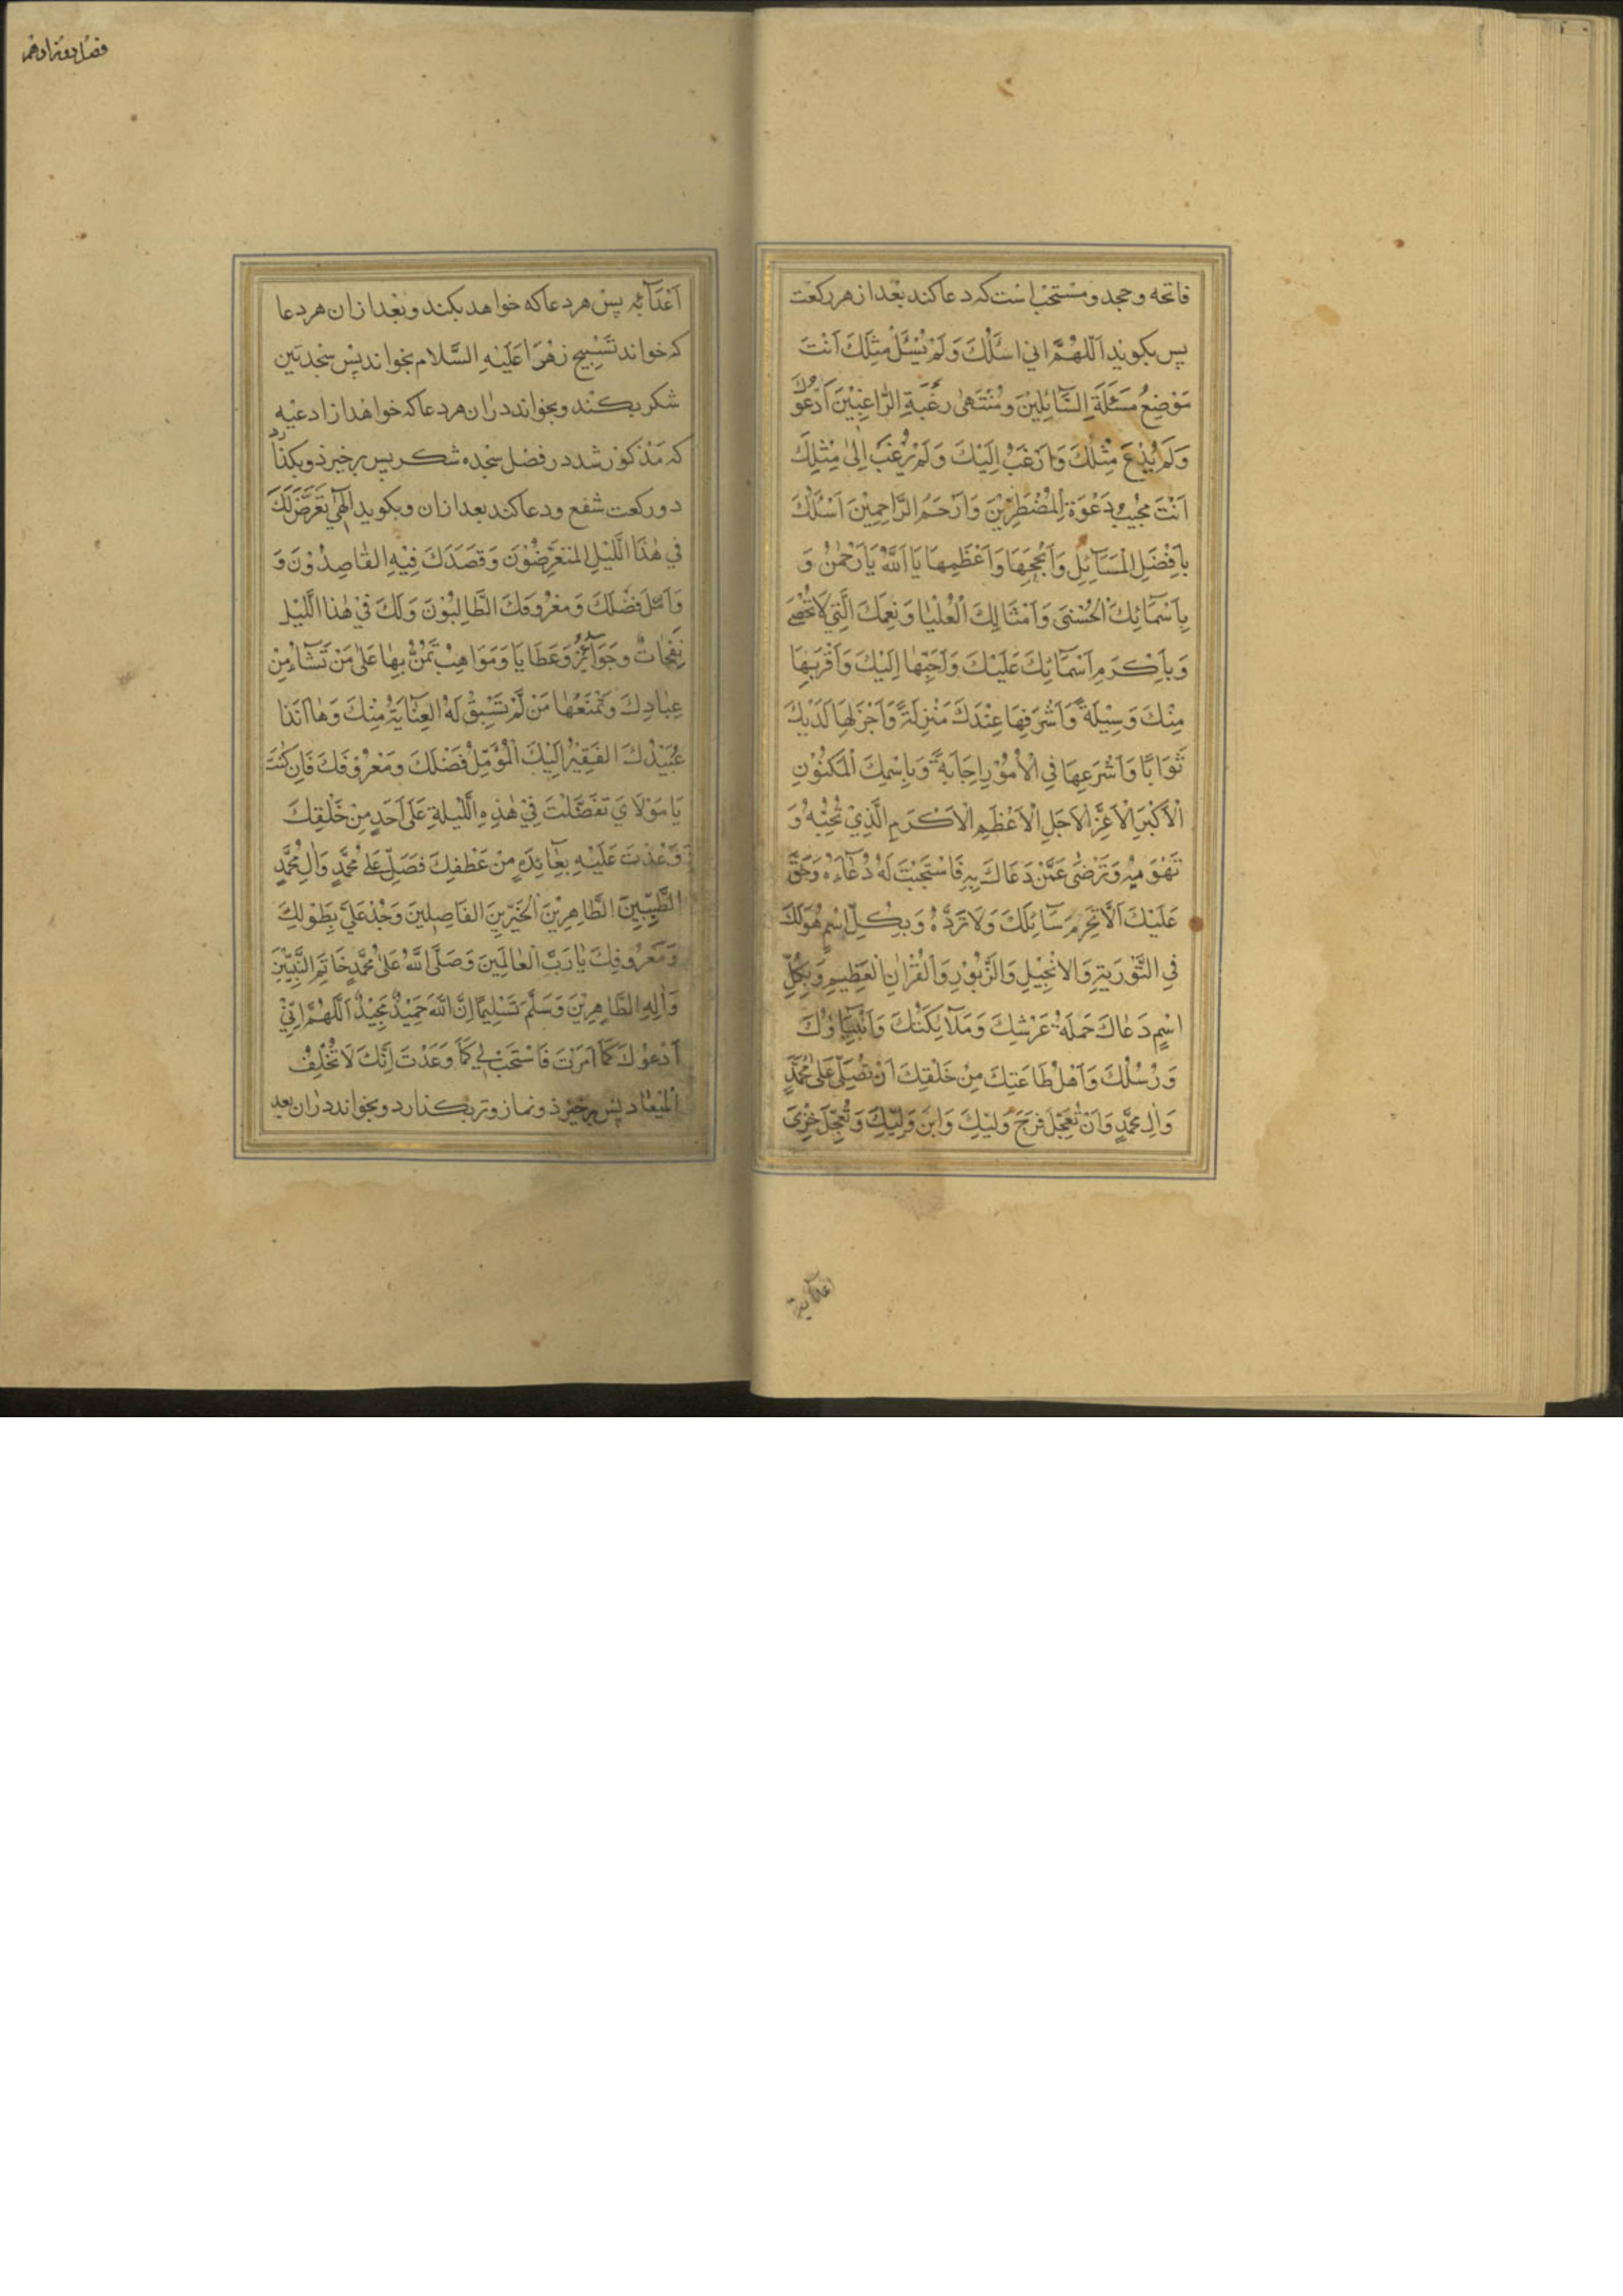 فاتحه و جحد و مستحب است که دعا کند بعد از هر رکعت
پس بکوید اَللّهُمَّ اِنی اَسئَلُكَ وَلَمْ يُسْئَلْ مِثْلُكَ اَنْتَ
مَوْضِعُ مَسْئَلَةِ السَّآئِلِيْنَ وَمُنْتَهىٰ رَغْبَةِ الرَّاغِبِيْنَ اَدْعُوكَ
وَلَمْ يُدْعَ مِثْلُكَ وَاَرْغَبُ اِلَيْكَ وَلَمْ يُرْغَبْ اِلىٰ مِثْلِكَ
اَنْتَ مُجِيْبُ دَعْوَةِ الْمُضْطَرِّيْنَ وَاَرْحَمُ الرَّاحِمِيْنَ اَسْئَلُكَ
بِاَفْضَلِ الْمَسَآئِلِ وَاَنْجَحِهَا وَاَعْظَمِهَا يَا اَللّٰهُ يَا رَحْمٰنُ وَ
بِاَسْمَآئِكَ الْحُسْنىٰ وَاَمْثَالِكَ الْعُلْيَا وَنِعَمِكَ الَّتِيْ لَا تُحْصىٰ
وَبِاَكْرَمِ اَسْمَآئِكَ عَلَيْكَ وَاَحَبِّهَا اِلَيْكَ وَاَقْرَبِهَا
مِنْكَ وَسِيْلَةً وَاَشْرَفِهَا عِنْدَكَ مَنْزِلَةً وَاَجْزَلِهَا لَدَيْكَ
ثَوَابًا وَاَسْرَعِهَا فِي الْاُمُوْرِ اِجَابَةً وَبِاسْمِكَ الْمَكْنُوْنِ
الْاَكْبَرِ الْاَعَزِّ الْاَجَلِّ الْاَعْظَمِ الْاَكْرَمِ الَّذِيْ تُحِبُّهُ وَ
تَهْوَيهُ وَتَرْضىٰ عَمَّنْ دَعَاكَ بِهِ فَاسْتَجَبْتَ لَهُ دُعَآءَهُ وَحَقٌّ
عَلَيْكَ اَلَّا تَحْرِمَ سَآئِلَكَ وَلَا تَرُدَّهُ وَبِكُلِّ اسْمٍ هُوَ لَكَ
فِي التَّوْرَيةِ وَالْاِنْجِيْلِ وَالزَّبُوْرِ وَالْقُرْاٰنِ الْعَظِيْمِ وَبِكُلِّ
اسْمٍ دَعَاكَ حَمَلَةُ عَرْشِكَ وَمَلَآئِكَتُكَ وَاَنْبِيَآؤُكَ
وَرُسُلُكَ وَاَهْلُ طَاعَتِكَ مِنْ خَلْقِكَ اَنْ تُصَلِّيَ عَلىٰ مُحَمَّدٍ
وَاٰلِ مُحَمَّدٍ وَاَنْ تُعَجِّلَ فَرَجَ وَلِيِّكَ وَابْنِ وَلِيِّكَ وَتُعَجِّلَ خِزْيَ
اعدآئه
فصل هفتادهم
اَعْدَآئِهِ پس هر دعا که خواهد بکند و بعد از ان هر دعا
که خواند تَسْبِيح زَهْرَا عَلَيْهِ السَّلَام بخواند پس سجدتین
شکر بکند و بخواند دران هر دعا که خواهد از ادعیه
که مذکور شد در فصل سجده شکر پس برخیزد و بکذارد
دو رکعت شفع و دعا کند بعد از ان و بکوید اِلٰهِيْ تَعَرَّضَ لَكَ
فِيْ هٰذَا اللَّيْلِ الْمُتَعَرِّضُوْنَ وَقَصَدَكَ فِيْهِ الْقَاصِدُوْنَ وَ
وَاَمَّلَ فَضْلَكَ وَمَعْرُوفَكَ الطَّالِبُوْنَ وَلَكَ فِيْ هٰذَا اللَّيْلِ
نَفَحَاتٌ وَجَوَآئِزُ وَعَطَايَا وَمَوَاهِبُ تَمُنُّ بِهَا عَلىٰ مَنْ تَشَآءُ مِنْ
عِبَادِكَ وَتَمْنَعُهَا مَنْ لَمْ تَسْبِقْ لَهُ الْعِنَايَةُ مِنْكَ وَهَا اَنَذَا
عُبَيْدُكَ الْفَقِيْرُ اِلَيْكَ الْمُؤَمِّلُ فَضْلَكَ وَمَعْرُوْفَكَ فَاِنْ كُنْتَ
يَا مَوْلَايَ تَفَضَّلْتَ فِيْ هٰذِهِ اللَّيْلَةِ عَلىٰ اَحَدٍ مِنْ خَلْقِكَ
وَعُدْتَ عَلَيْهِ بِعَآئِدَةٍ مِنْ عَطْفِكَ فَصَلِّ عَلىٰ مُحَمَّدٍ وَاٰلِ مُحَمَّدٍ
الطَّيِّبِيْنَ الطَّاهِرِيْنَ الْخَيِّرِيْنَ الْفَاضِلِيْنَ وَجُدْ عَلَيَّ بِطَوْلِكَ
وَمَعْرُوفِكَ يَا رَبَّ الْعَالَمِيْنَ وَصَلَّى اللّٰهُ عَلىٰ مُحَمَّدٍ خَاتَمِ النَّبِيِّيْنَ
وَاٰلِهِ الطَّاهِرِيْنَ وَسَلَّمَ تَسْلِيْمًا اِنَّ اللّٰهَ حَمِيْدٌ مَجِيْدٌ اَللّٰهُمَّ اِنِّيْ
اَدْعُوْكَ كَمَا اَمَرْتَ فَاسْتَجِبْ لِيْ كَمَا وَعَدْتَ اِنَّكَ لَا تُخْلِفُ
الْمِيْعَادَ پس برخیزد و نماز وتر بکذارد و بخواند دران بعد